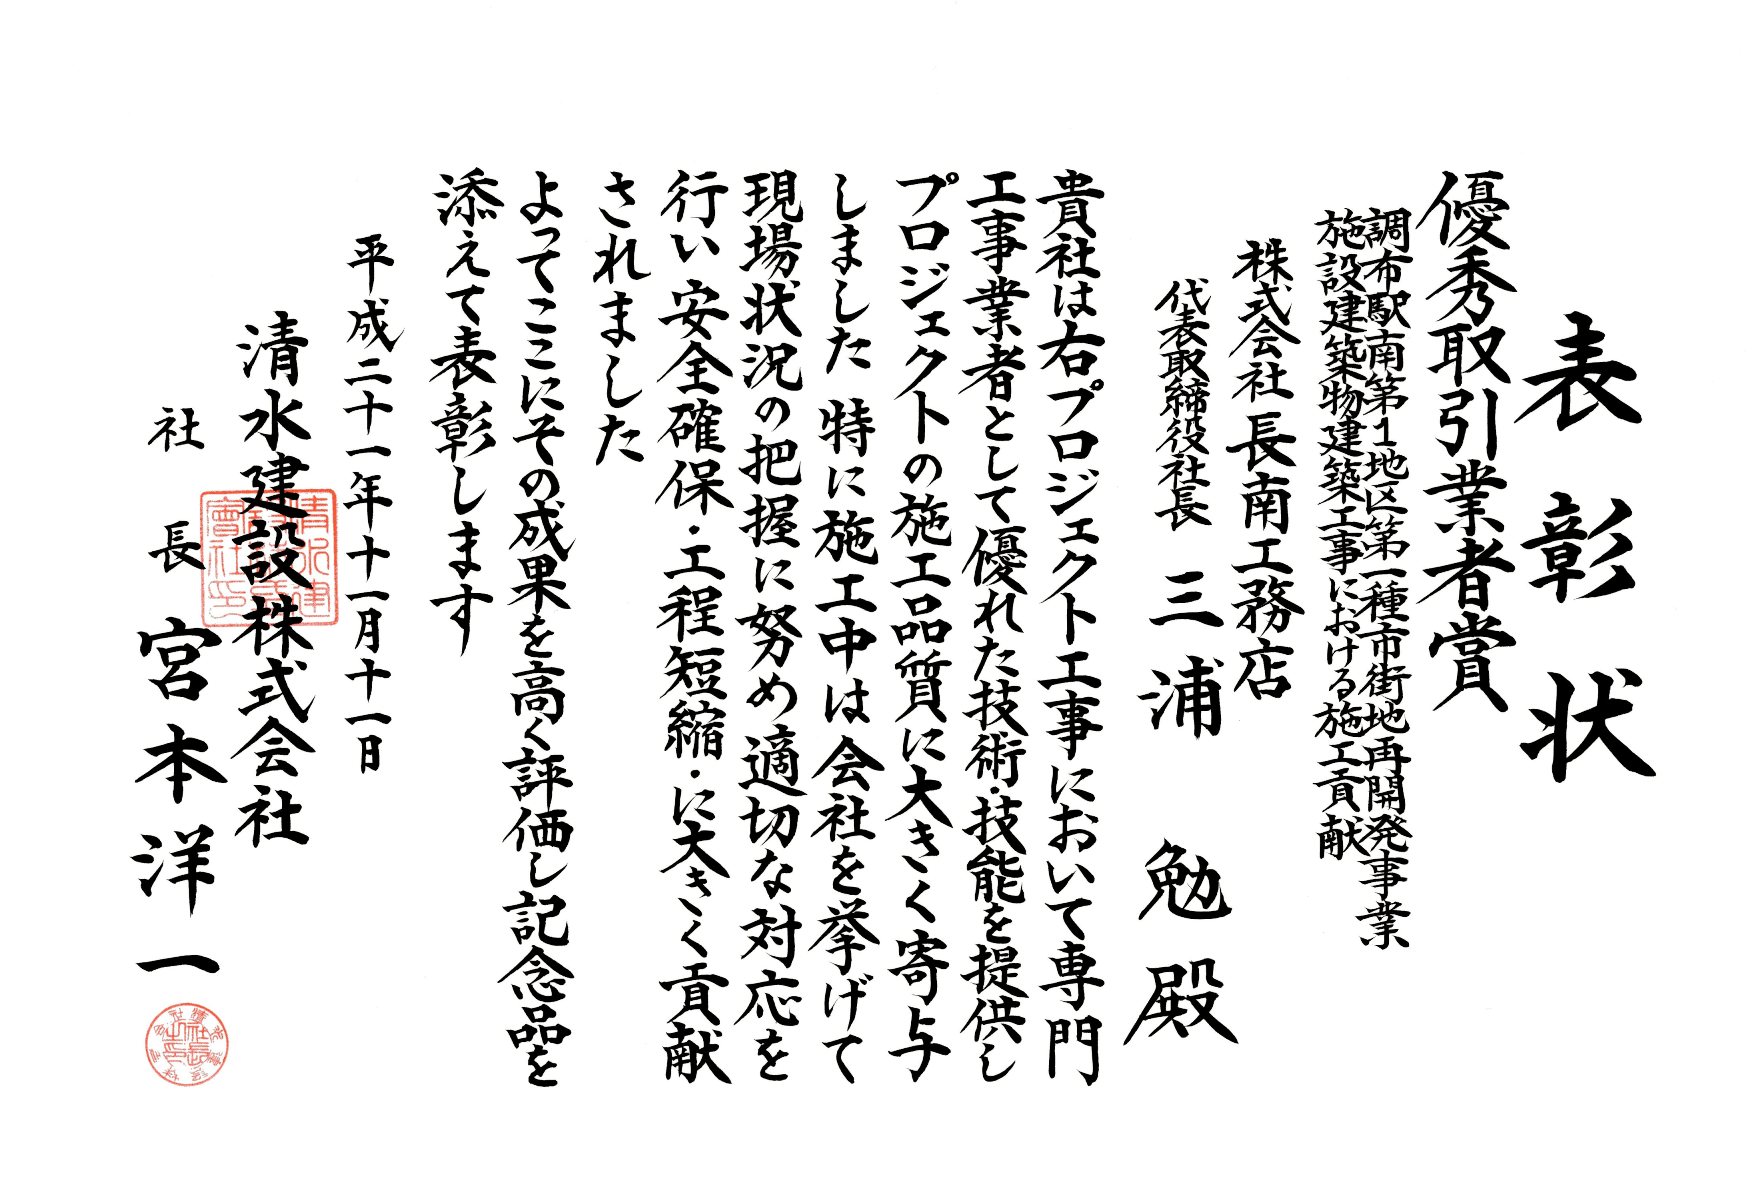 表彰状
優秀取引業者賞
調布駅南第1地区第一種市街地再開発事業
施設建築物建築工事における施工貢献
株式会社 長南工務店
代表取締役社長 三浦 勉 殿
貴社は右プロジェクト工事において専門
工事業者として優れた技術・技能を提供し
プロジェクトの施工品質に大きく寄与
しました 特に施工中は会社を挙げて
現場状況の把握に努め適切な対応を
行い安全確保・工程短縮・に大きく貢献
されました
よってここにその成果を高く評価し記念品を
添えて表彰します
平成二十一年十一月十一日
清水建設株式会社
社長 宮本洋一